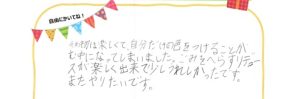 自由にかいてね!
は楽しくて、自分だけの色をつけることが
むちゅうになってしまいました。ごみをへらすリデュー
スが楽しく出来て少しうれしかったです。
またやりたいです。